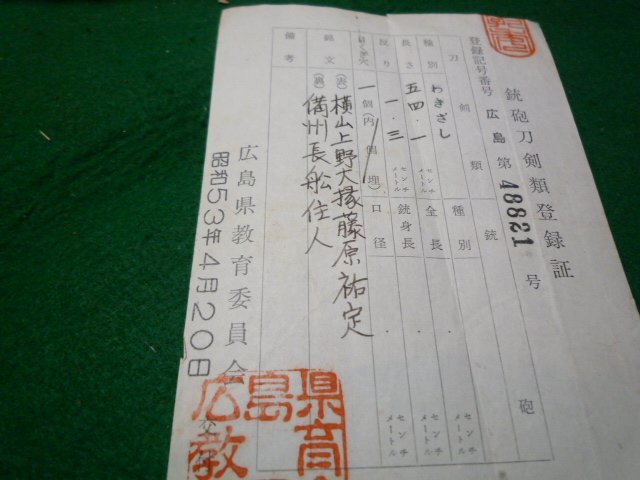 銃砲刀剣類登録証
登録記号番号 広島 第 48821 号
刀剣類 銃砲
種別 わきざし 種別
長さ 五四・一 センチメートル 全長 センチメートル
反り 一・三 センチメートル 銃身長 センチメートル
目くぎ穴 一個(内 個埋) 口径 センチメートル
銘文 (表) 横山上野大掾藤原祐定
(裏) 備州長舩住人
備考
広島県教育委員会
昭和53年4月20日
広島県教育